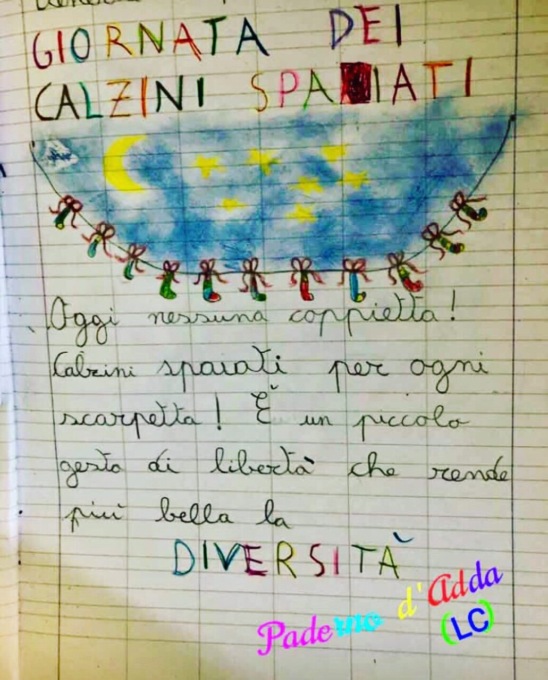 GIORNATA DEI
CALZINI SPAIATI
Oggi nessuna coppietta!
Calzini spaiati per ogni
scarpetta! È un piccolo
gesto di libertà che rende
più bella la
DIVERSITÀ
Paderno d'Adda
(LC)